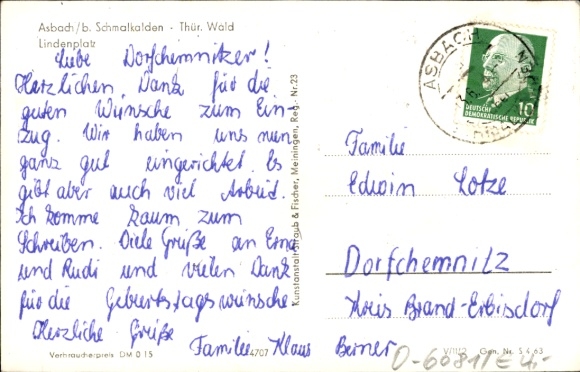 Asbach/b. Schmalkalden - Thür. Wald
Lindenplatz
Liebe Dorfchemnitzer!
Herzlichen Dank für die
guten Wünsche zum Ein-
zug. Wir haben uns nun
ganz gut eingerichtet. Es
gibt aber auch viel Arbeit.
Ich komme kaum zum
Schreiben. Viele Grüße an Erna
und Rudi und vielen Dank
für die Geburtstagswünsche
Herzliche Grüße
Familie Klaus Berner
Verbraucherpreis DM 0 15
4707
V/11/2 Gen. Nr. S 4 63
Kunstanstalt Straub & Fischer, Meiningen, Reg.-Nr. 23
ASBACH
DEUTSCHE
DEMOKRATISCHE REPUBLIK
10
Familie
Edwin Lotze
Dorfchemnitz
Kreis Brand-Erbisdorf